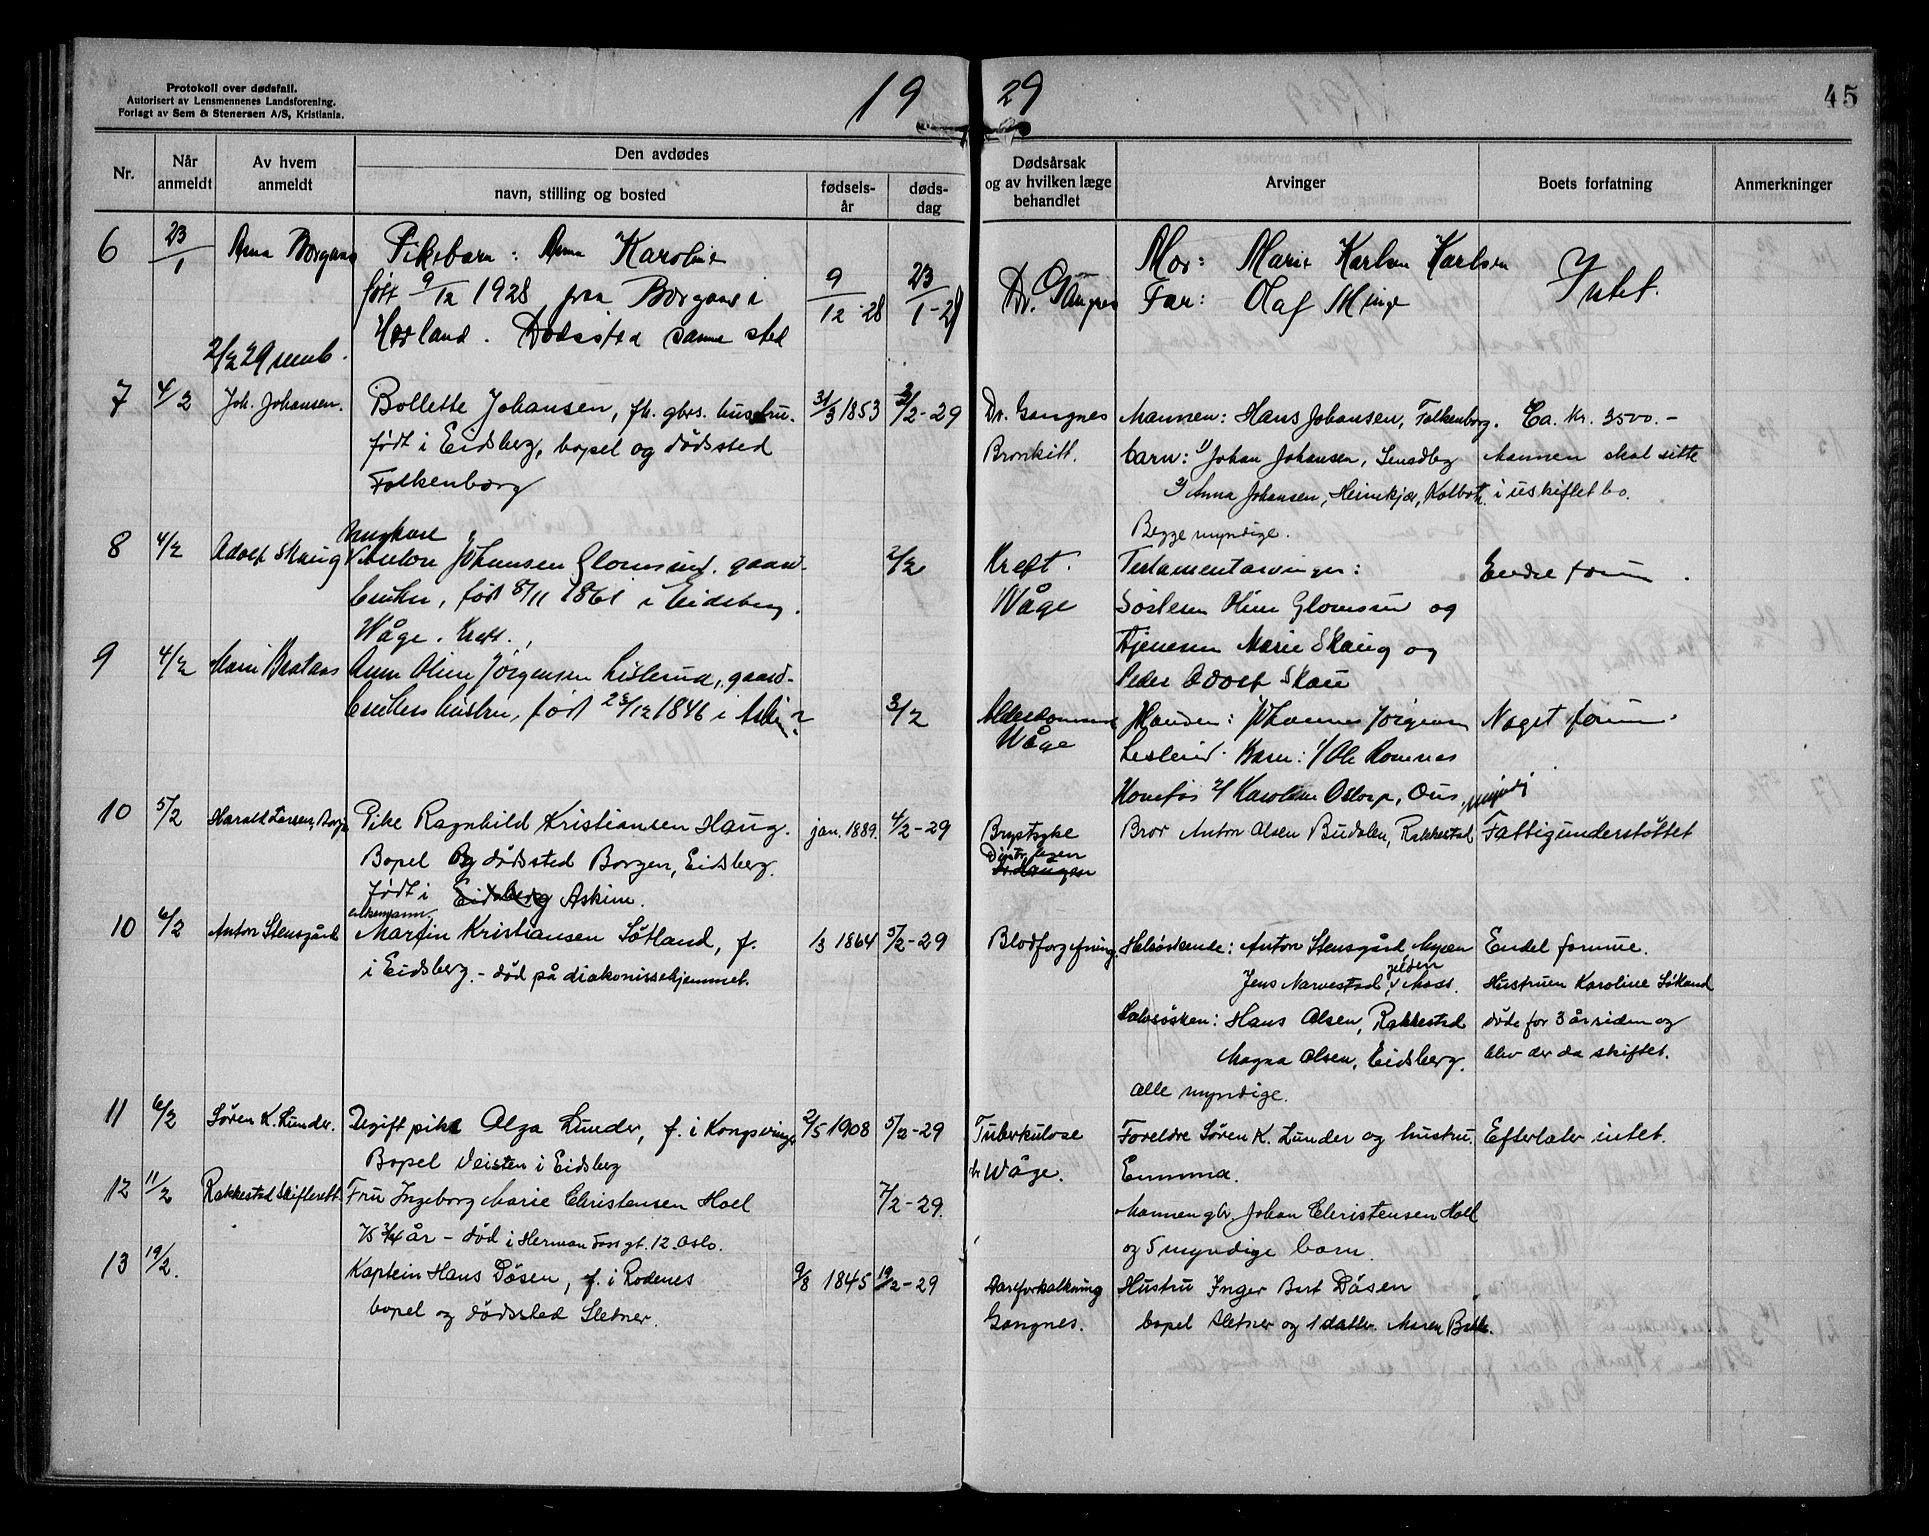 Protokoll over dødsfall.
Autorisert av Lensmennenes Landsforening.
Forlagt av Sem & Stenersen A/S, Kristiania.
19 29
45
Nr.
Når anmeldt
Av hvem anmeldt
Den avdødes
navn, stilling og bosted
fødsels-år
døds-dag
Dødsårsak og av hvilken læge behandlet
Arvinger
Boets forfatning
Anmerkninger
6 23/1 Anna Borgaas Pikebarn: Anna Karoline
født 9/12 1928 paa Borgaas i
Herland. Dødssted samme sted
9/12-28 23/1-29
Dr. Gangnes
Mor: Marie Karlsen
Far: Olaf Minge
Intet.
7 4/2 Joh. Johansen. Bollette Johansen, fh. gbrs. hustru.
født i Eidsberg, bopel og dødssted
Folkenborg
31/3 1853 2/2-29
Dr. Gangnes
Bronkitt.
Mannen: Hans Johansen, Folkenborg.
barn: 1) Johan Johansen,
2) Anna Johansen, Heimkjær, Kolbotn.
Begge myndige.
Ca. kr. 3500.-
Mannen skal sitte
i uskiftet bo.
8 4/2 Adolf Skaug
Ungkare
Anton Johansen Glomsrud. gaard-
bruker, født 8/11 1861 i Eidsberg.
Wåge. Kreft.
2/2
Kreft.
Wåge
Testamentarvinger:
Søsteren Oline Glomsrud og
tjeneren Marie Skaug og
Peder Adolf Skau
Endel formue.
9 4/2 Marie Braataas Anne Oline Jørgensen Lislerud, gaard-
brukers hustru, født 23/12 1846 i Askim?
3/2
Alderdomme
Wåge
Manden: Johannes Jørgensen
Lislerud. Barn: 1/ Ole Romnes
Hønefos 2/ Karoline Ostorp, Ous, myndig
Noget formue.
10 5/2 Harald Larsen, Borge Pike Ragnhild Kristiansen Haug.
Bopel og dødssted Borgen, Eidsberg.
født i Eidsberg Askim.
jan. 1889. 4/2-29
Brystsyke
Distr. legen
Bror Anton Olsen Budalen, Rakkestad
Fattigunderstøttet
10 6/2 Anton Stensgård
enkemann
Martin Kristiansen Søtland, f.
i Eidsberg. - død på diakonissehjemmet.
1/3 1864 5/2-29
Blodforgiftning.
Helsøskende: Anton Stensgård Mysen
Jens Narvestad, Jeløen Moss.
Halvsøsken: Hans Olsen, Rakkestad
Magna Olsen, Eidsberg.
alle myndige.
Endel formue.
Hustruen Karoline Søtland
døde for 3 år siden og
blev der da skiftet.
11 6/2 Søren K. Lunder. Ugift pike Olga Lunder, f. i Kongsvinger
Bopel Veisten i Eidsberg
2/5 1908 5/2-29
Tuberkulose
Dr Wåge.
Foreldre Søren K. Lunder og hustru
Emma.
Efterlater intet.
12 11/2 Rakkestad Skifterett Fru Ingeborg Marie Christensen Hoel
75 3/4 år - død i Herman Fossgt. 12. Oslo.
7/2-29.
Mannen gbr. Johan Christensen Hoel
og 5 myndige barn.
13 19/2. Kaptein Hans Døsen, f. i Rødenes
bopel og dødssted Sletner.
9/8 1845 19/2-29
Aareforkalkning
Gangnes.
Hustru Inger Døsen
bopel Sletner og 1 datter Maren